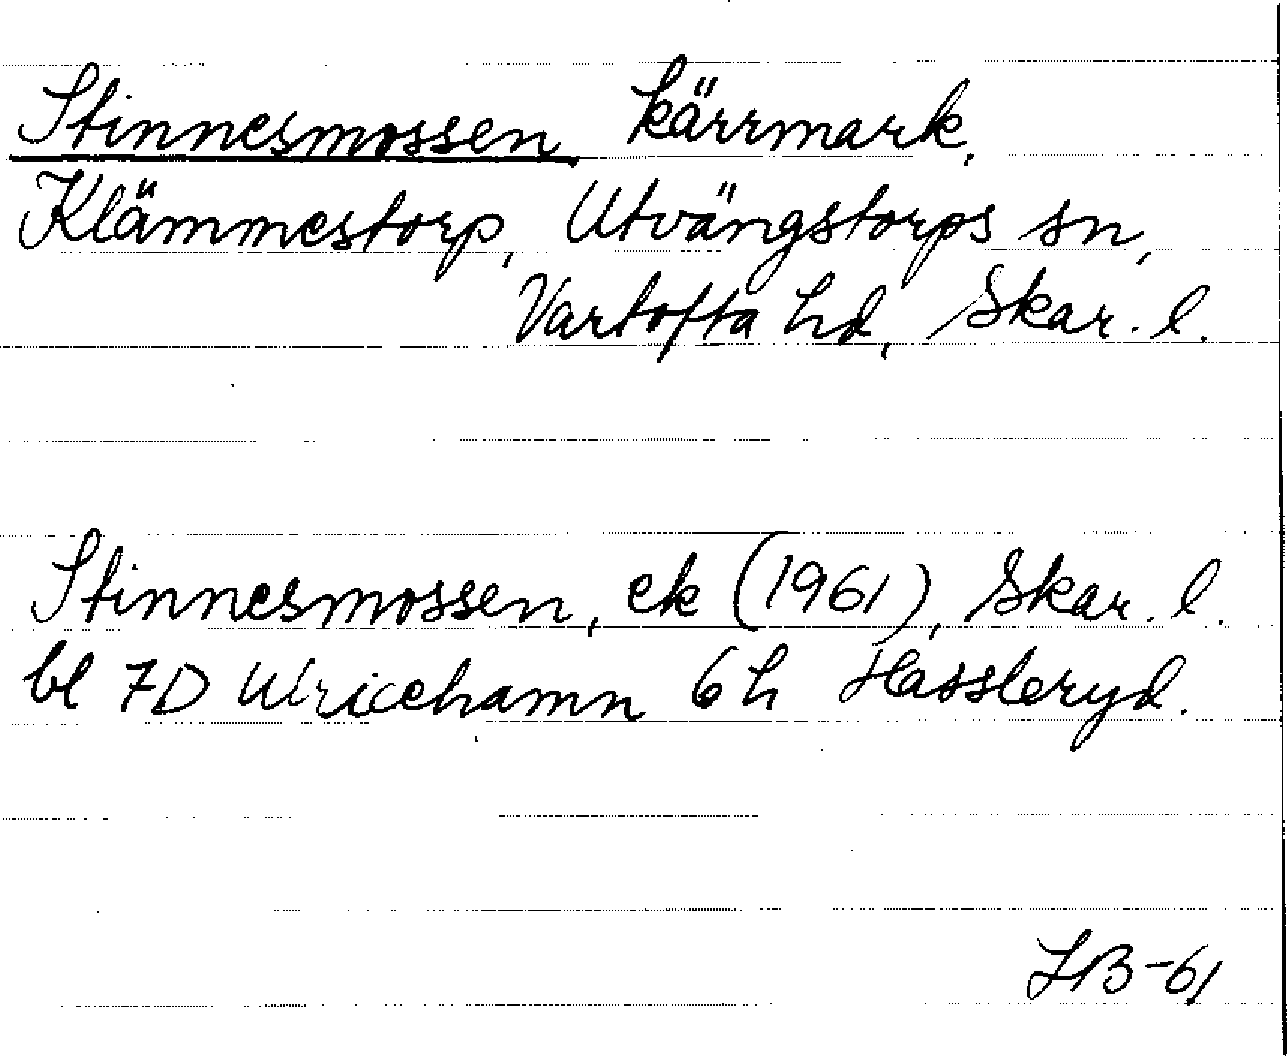 Stinnesmossen kärrmark,
Klämmestorp, Utvängstorps sn,
Vartofta hd, Skar. l.
Stinnesmossen, ek (1961), Skar. l.
bl 7D Ulricehamn 6h Hassleryd.